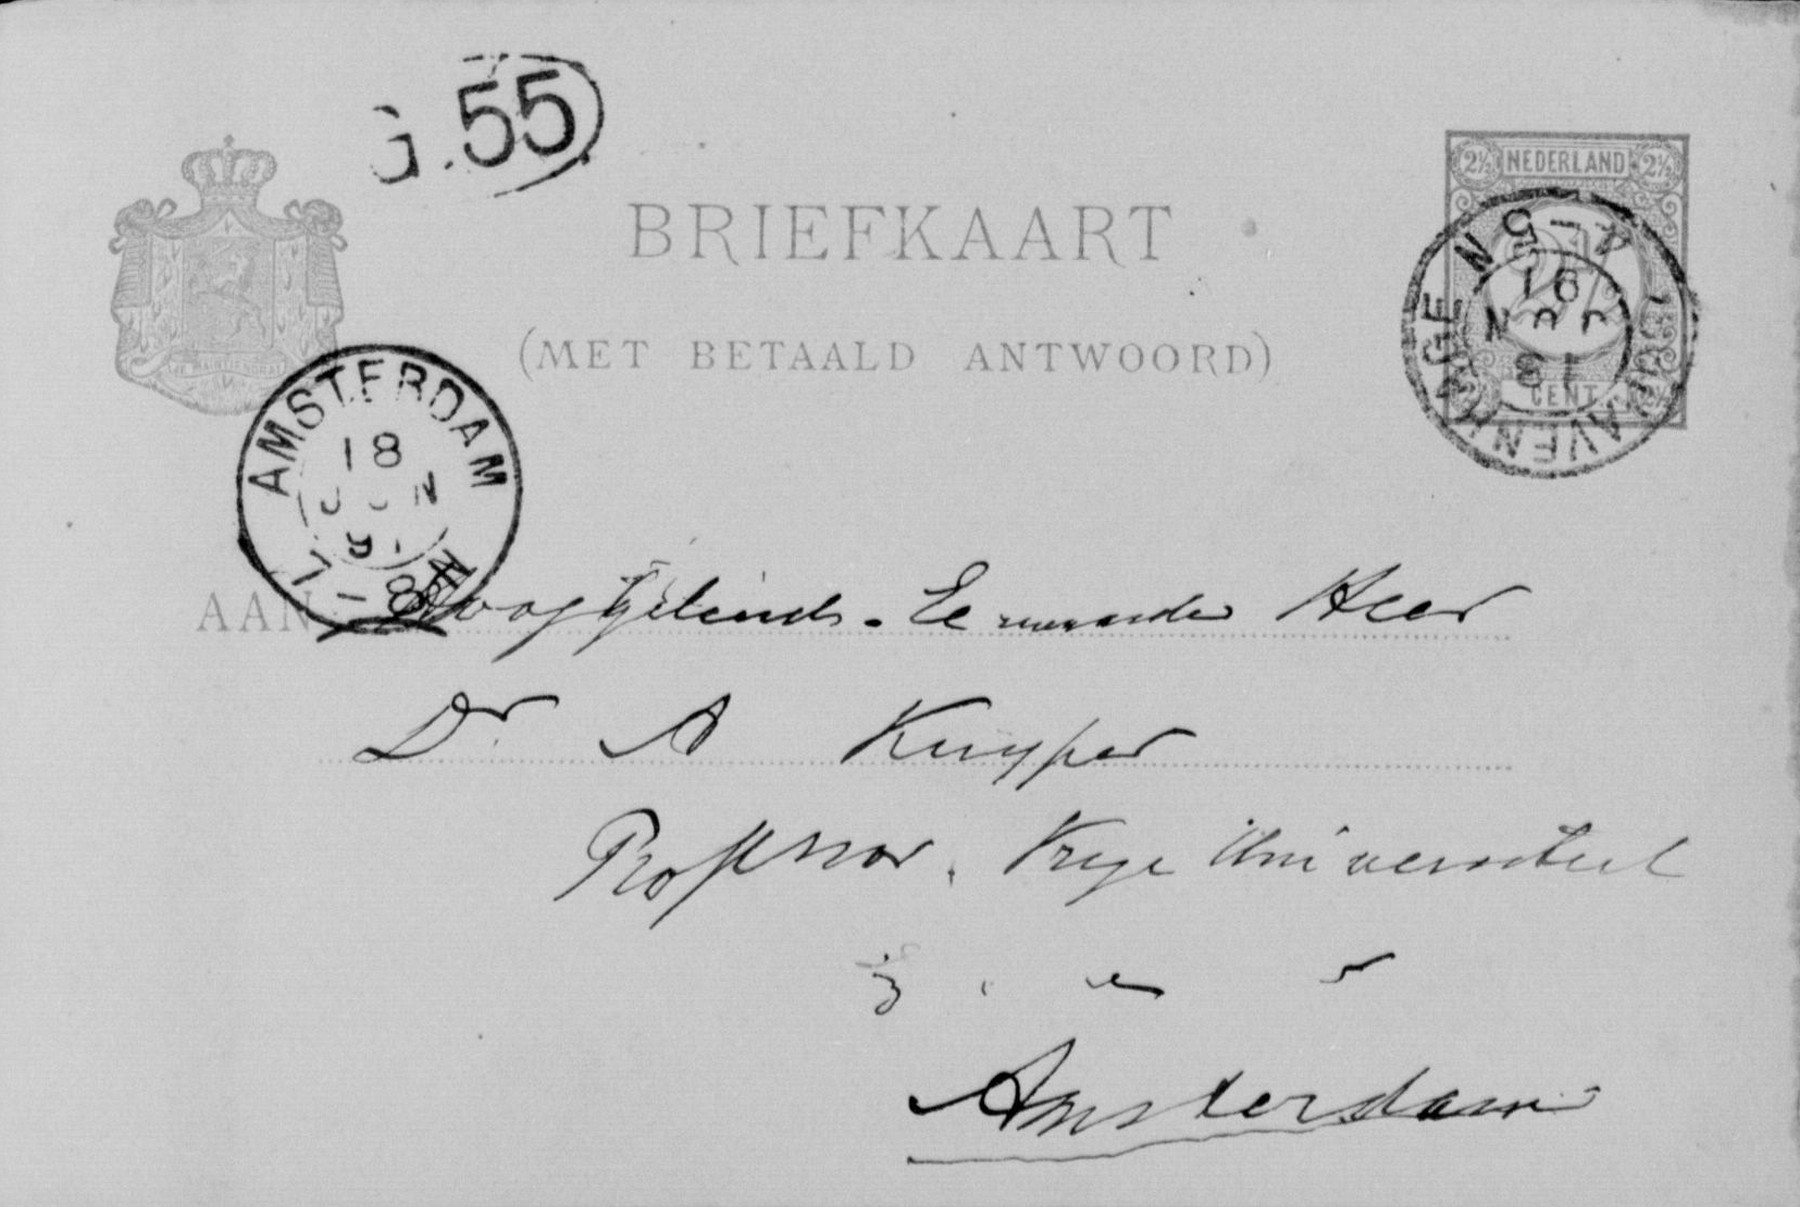 G.55
NEDERLAND
2½ 2½
BRIEFKAART
(MET BETAALD ANTWOORD)
CENT
'S GRAVENHAGE
4-5N
18
JUN
91
JE MAINTIENDRAI
AMSTERDAM
18
JUN
91
7-8N
AAN Hooggeleerde Heer
Dr A Kuyper
Professor. Vrije Universiteit
Amsterdam